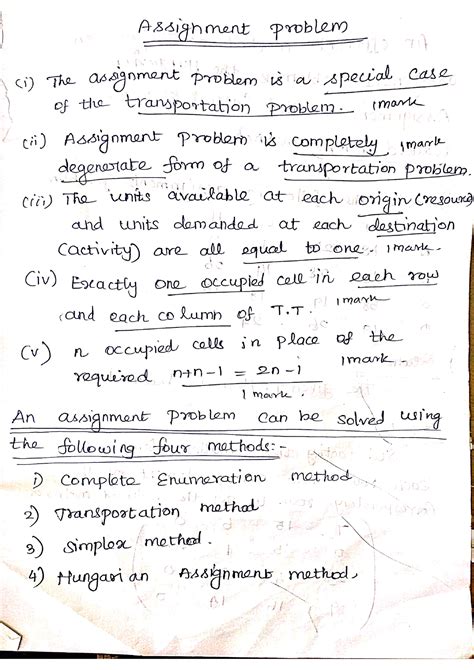 Assignment problem
(i) The assignment problem is a special case
of the transportation problem. 1mark
(ii) Assignment Problem is completely 1mark
degenerate form of a transportation problem.
(iii) The units available at each origin (resource)
and units demanded at each destination
(activity) are all equal to one. 1mark.
(iv) Exactly one occupied cell in each row
and each column of T.T. 1mark
(v) n occupied cells in place of the
required n+n-1 = 2n-1 1mark.
1 mark.
An assignment problem can be solved using
the following four methods:-
1) Complete Enumeration method
2) Transportation method
3) Simplex method.
4) Hungarian Assignment method,